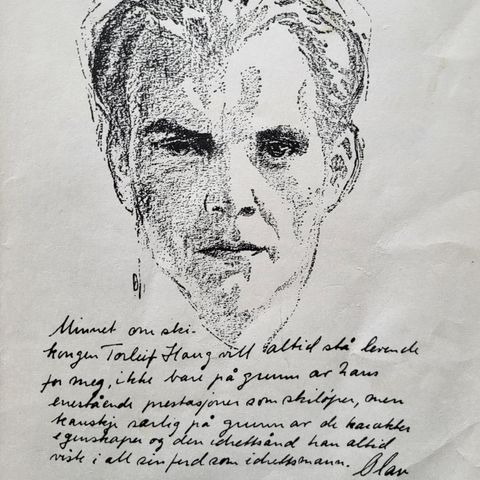 Minnet om ski-
kongen Torleif Haug vill altid stå levende
for meg, ikke bare på grunn av hans
enestående prestasjoner som skiløper, men
kanskje særlig på grunn av de karakter
egenskaper og den idrettsånd han altid
viste i all sin ferd som idrettsmann. Olav